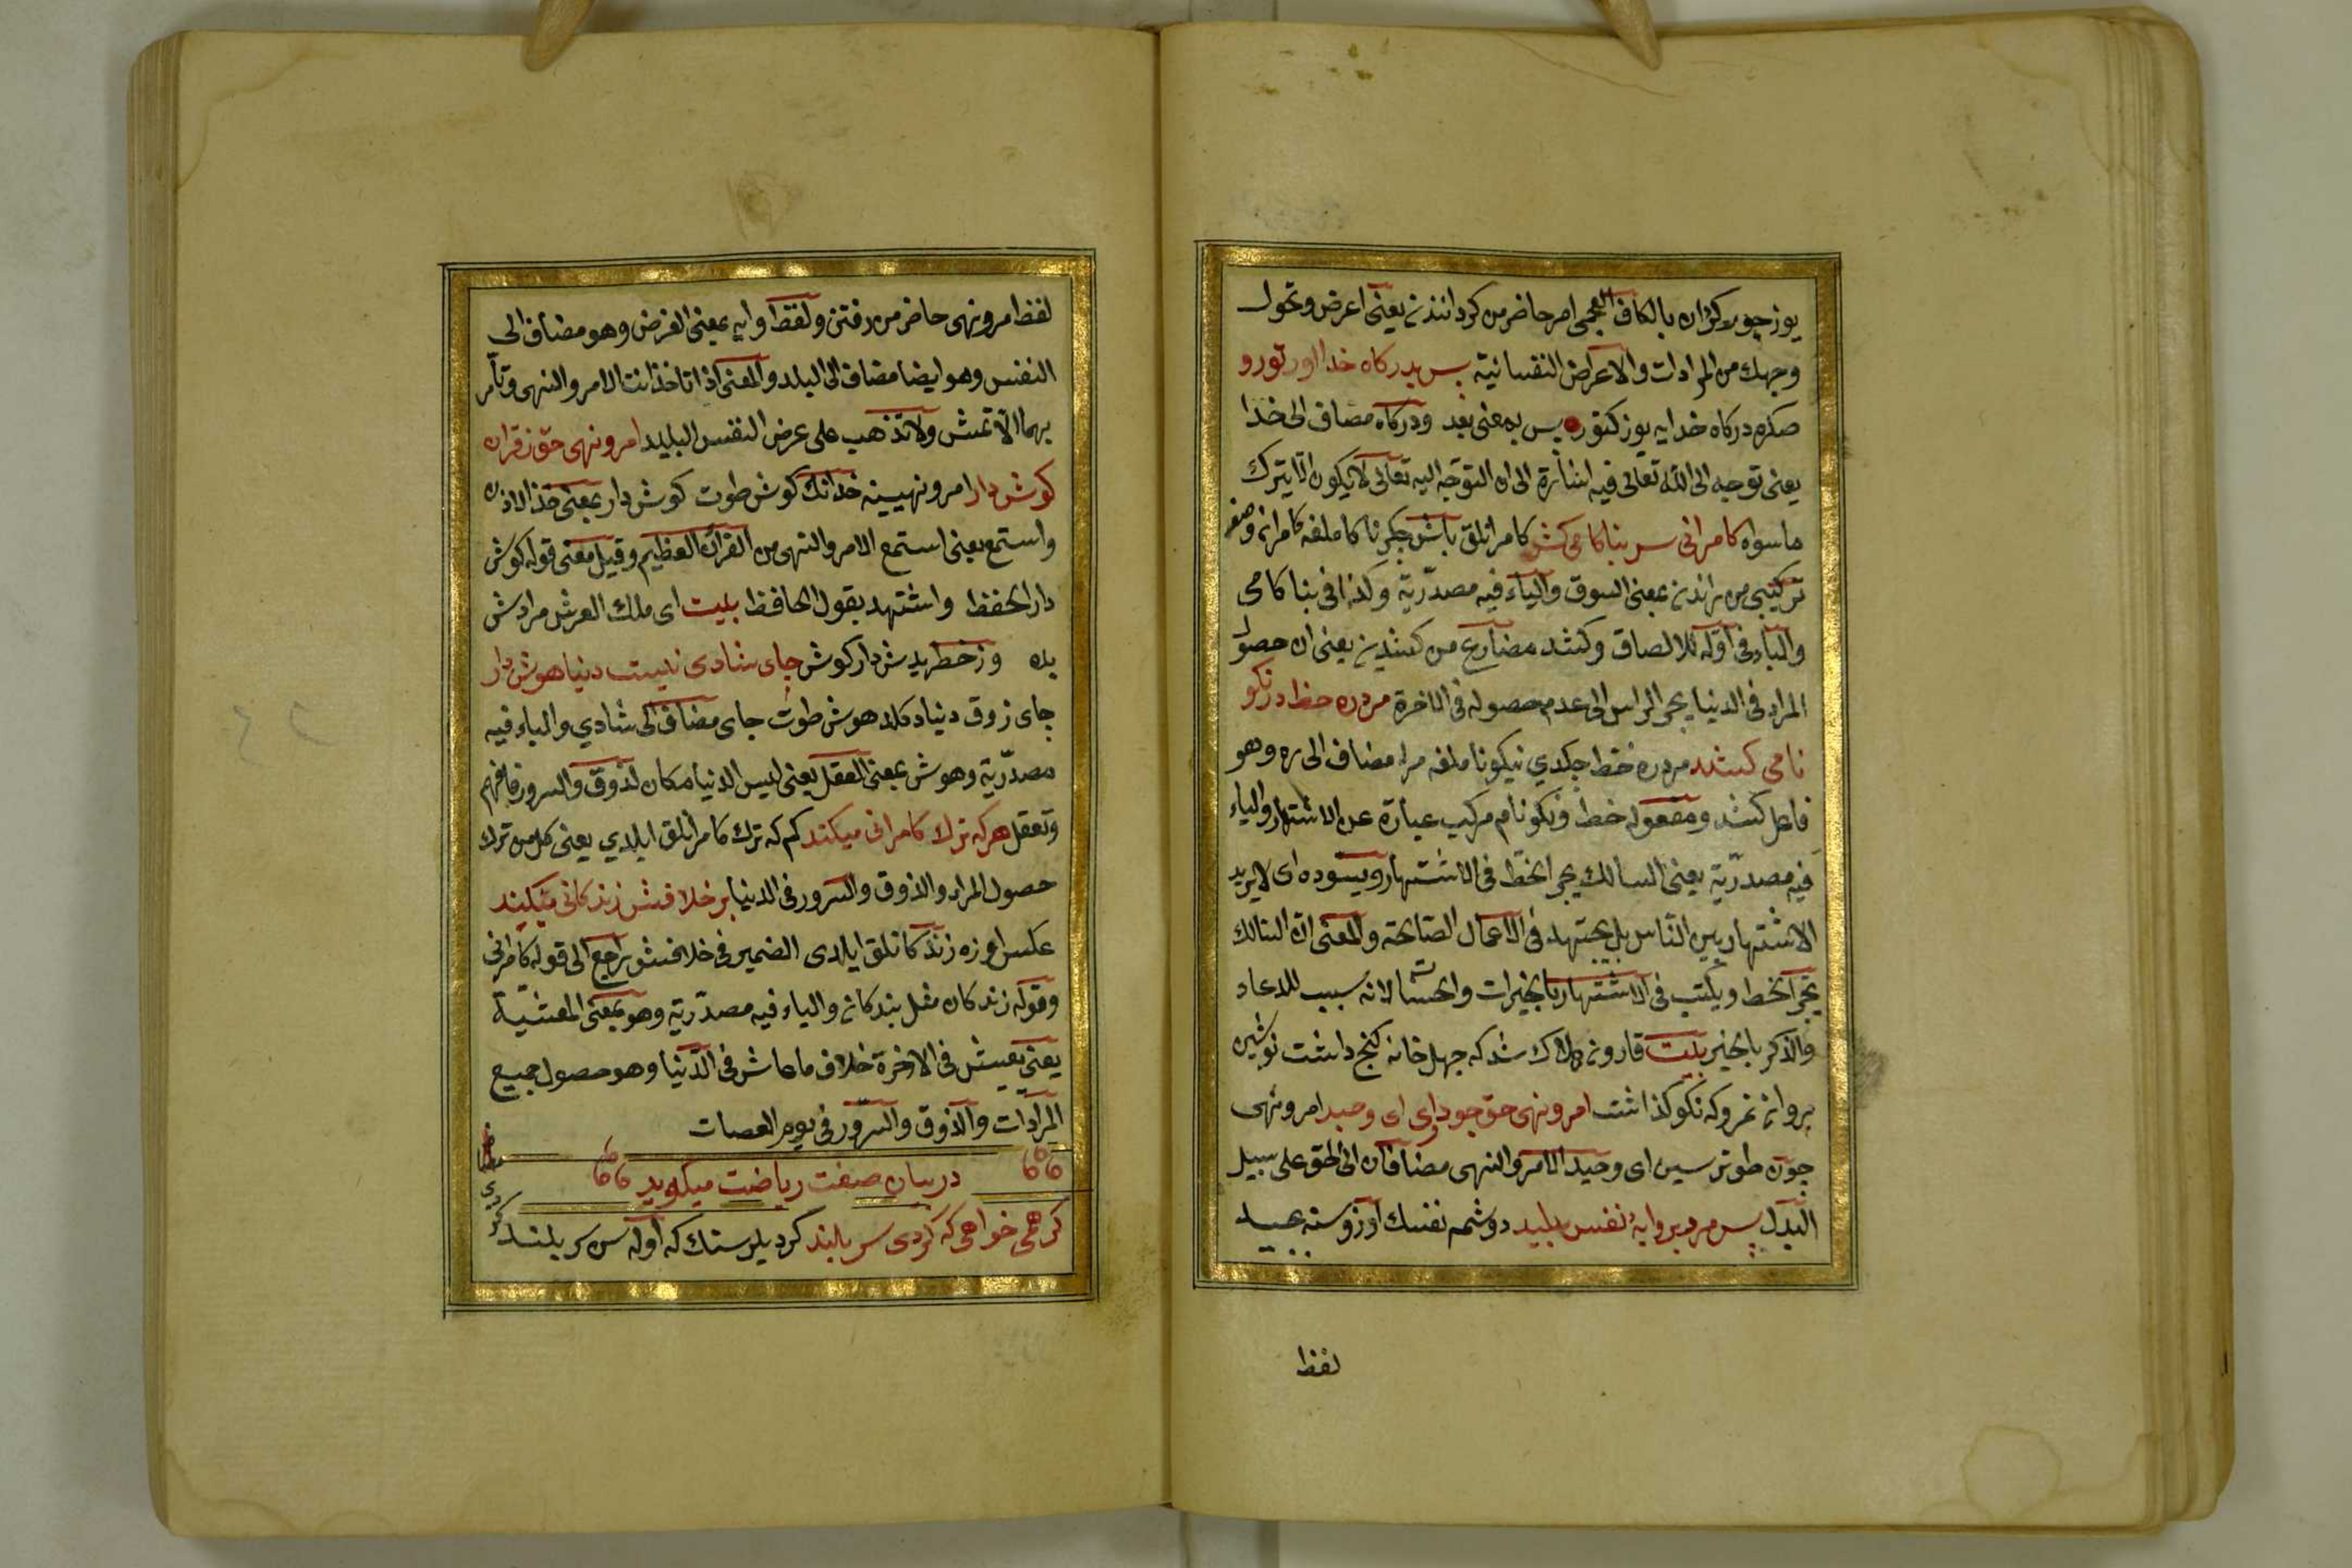 يوز چور كزان بالكاف العجمى امر حاضر من كردانندن يعنى اعرض وتحول
وجهك من المرادات والاعراض النفسانية پس بدركاه خدا اور تو رو
صكره دركاه خدايه يوز كتور پس بمعنى بعد ودركاه مضاف الى خدا
يعنى توجه الى الله تعالى فيه اشارة الى ان التوجه اليه تعالى لا يكون الا بترك
ماسواه كامرانى سر بنا كامى كشد كامرانلق باش چكر ناكاملغه كامران وصف
تركيبى من راندن بمعنى السوق والياء فيه مصدرية وكذا فى بناكامى
والباء فى اوله للالصاق وكشد مضارع من كشيدن يعنى ان حصول
المراد فى الدنيا يجر الراس الى عدم حصوله فى الاخرة مرد ره خط در نكو
نامى كشد مرد ره خط چكدي نيكونا ملغه مرد مضاف الى ره وهو
فاعل كشد ومفعوله خط ونكونام مركب عبارة عن الاشتهار والياء
فيه مصدرية يعنى السالك يجر الخط فى الاشتهار ويسوده اى لا يريد
الاشتهار بين الناس بل يجتهد فى الاعمال الصالحة والمعنى ان السالك
يجر الخط ويكتب فى الاشتهار بالخيرات والحسنات لانه سبب للدعاء
والذكر بالخير بيت قارون هلاك شد كه چهل خانه كنج داشت نوشين
روان نمرد كه نام نكو كذاشت امر ونهى حق چو دارى اى وحيد امر ونهى
چون طوترسين اى وحيد الامر والنهى مضافان الى الحق على سبيل
البدل پس مرو بر وايۀ نفس پليد دوشمه نفسك آرزوسنه عبيد
لفظ
لفظ امر ونهى حاضر من رفتن ولفظ وايه بمعنى الغرض وهو مضاف الى
النفس وهو ايضا مضاف الى البليد والمعنى اذا تاخذ انت الامر والنهى وتأمر
بهما الا تمش ولا تذهب على عرض النفس البليد امر ونهى حق ز قران
كوش دار امر ونهيسنه خدانك كوش طوت كوش دار بمعنى خذ الاذن
واستمع يعنى استمع الامر والنهى من القران العظيم وقيل معنى قوله كوش
دار الحفظ واشتهد بقول الحافظ بيت اى ملك العرش مرادش
بده وز خطر بدش دار كوش جاى شادى نيست دنيا هوش دار
جاى ذوق دنيا دكلدر هوش طوت جاى مضاف الى شادي والياء فيه
مصدرية وهوش بمعنى العقل يعنى ليس الدنيا مكان الذوق والسرور فافهم
وتعقل هر كه ترك كامرانى ميكند كم كه ترك كامرانلق ايلدي يعنى كل من ترك
حصول المراد والذوق والسرور فى الدنيا بر خلافش زندكانى ميكند
عكس اوزره زندكانلق ايلدى الضمير فى خلافش راجع الى قوله كامرانى
وقوله زندكان مثل بندكان والياء فيه مصدرية وهو بمعنى المعيشة
يعنى يعيش فى الاخرة خلاف ما عاش فى الدنيا وهو حصول جميع
المرادات والذوق والسرور فى يوم العصات
در بيان صفت رياضت ميكويد
كر همى خواهى كه كردى سر بلند كر ديلرسنك كه اوله سن سر بلند